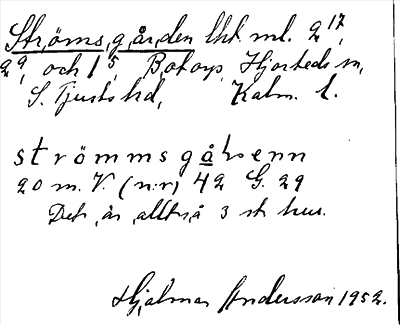 Strömsgården lht. ml. 2¹⁷,
2⁹, och 1⁵, Botorp, Hjorteds sn,
S. Tjusts hd, Kalm. l.
strömmsgårenn
20 m. V. (n.r) 42 G. 29
Det är alltså 3 st hus.
Hjalmar Andersson 1952.